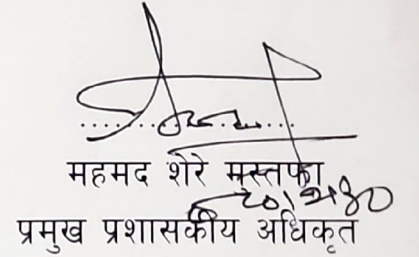 महमद शेरे मस्तफा
प्रमुख प्रशासकीय अधिकृत